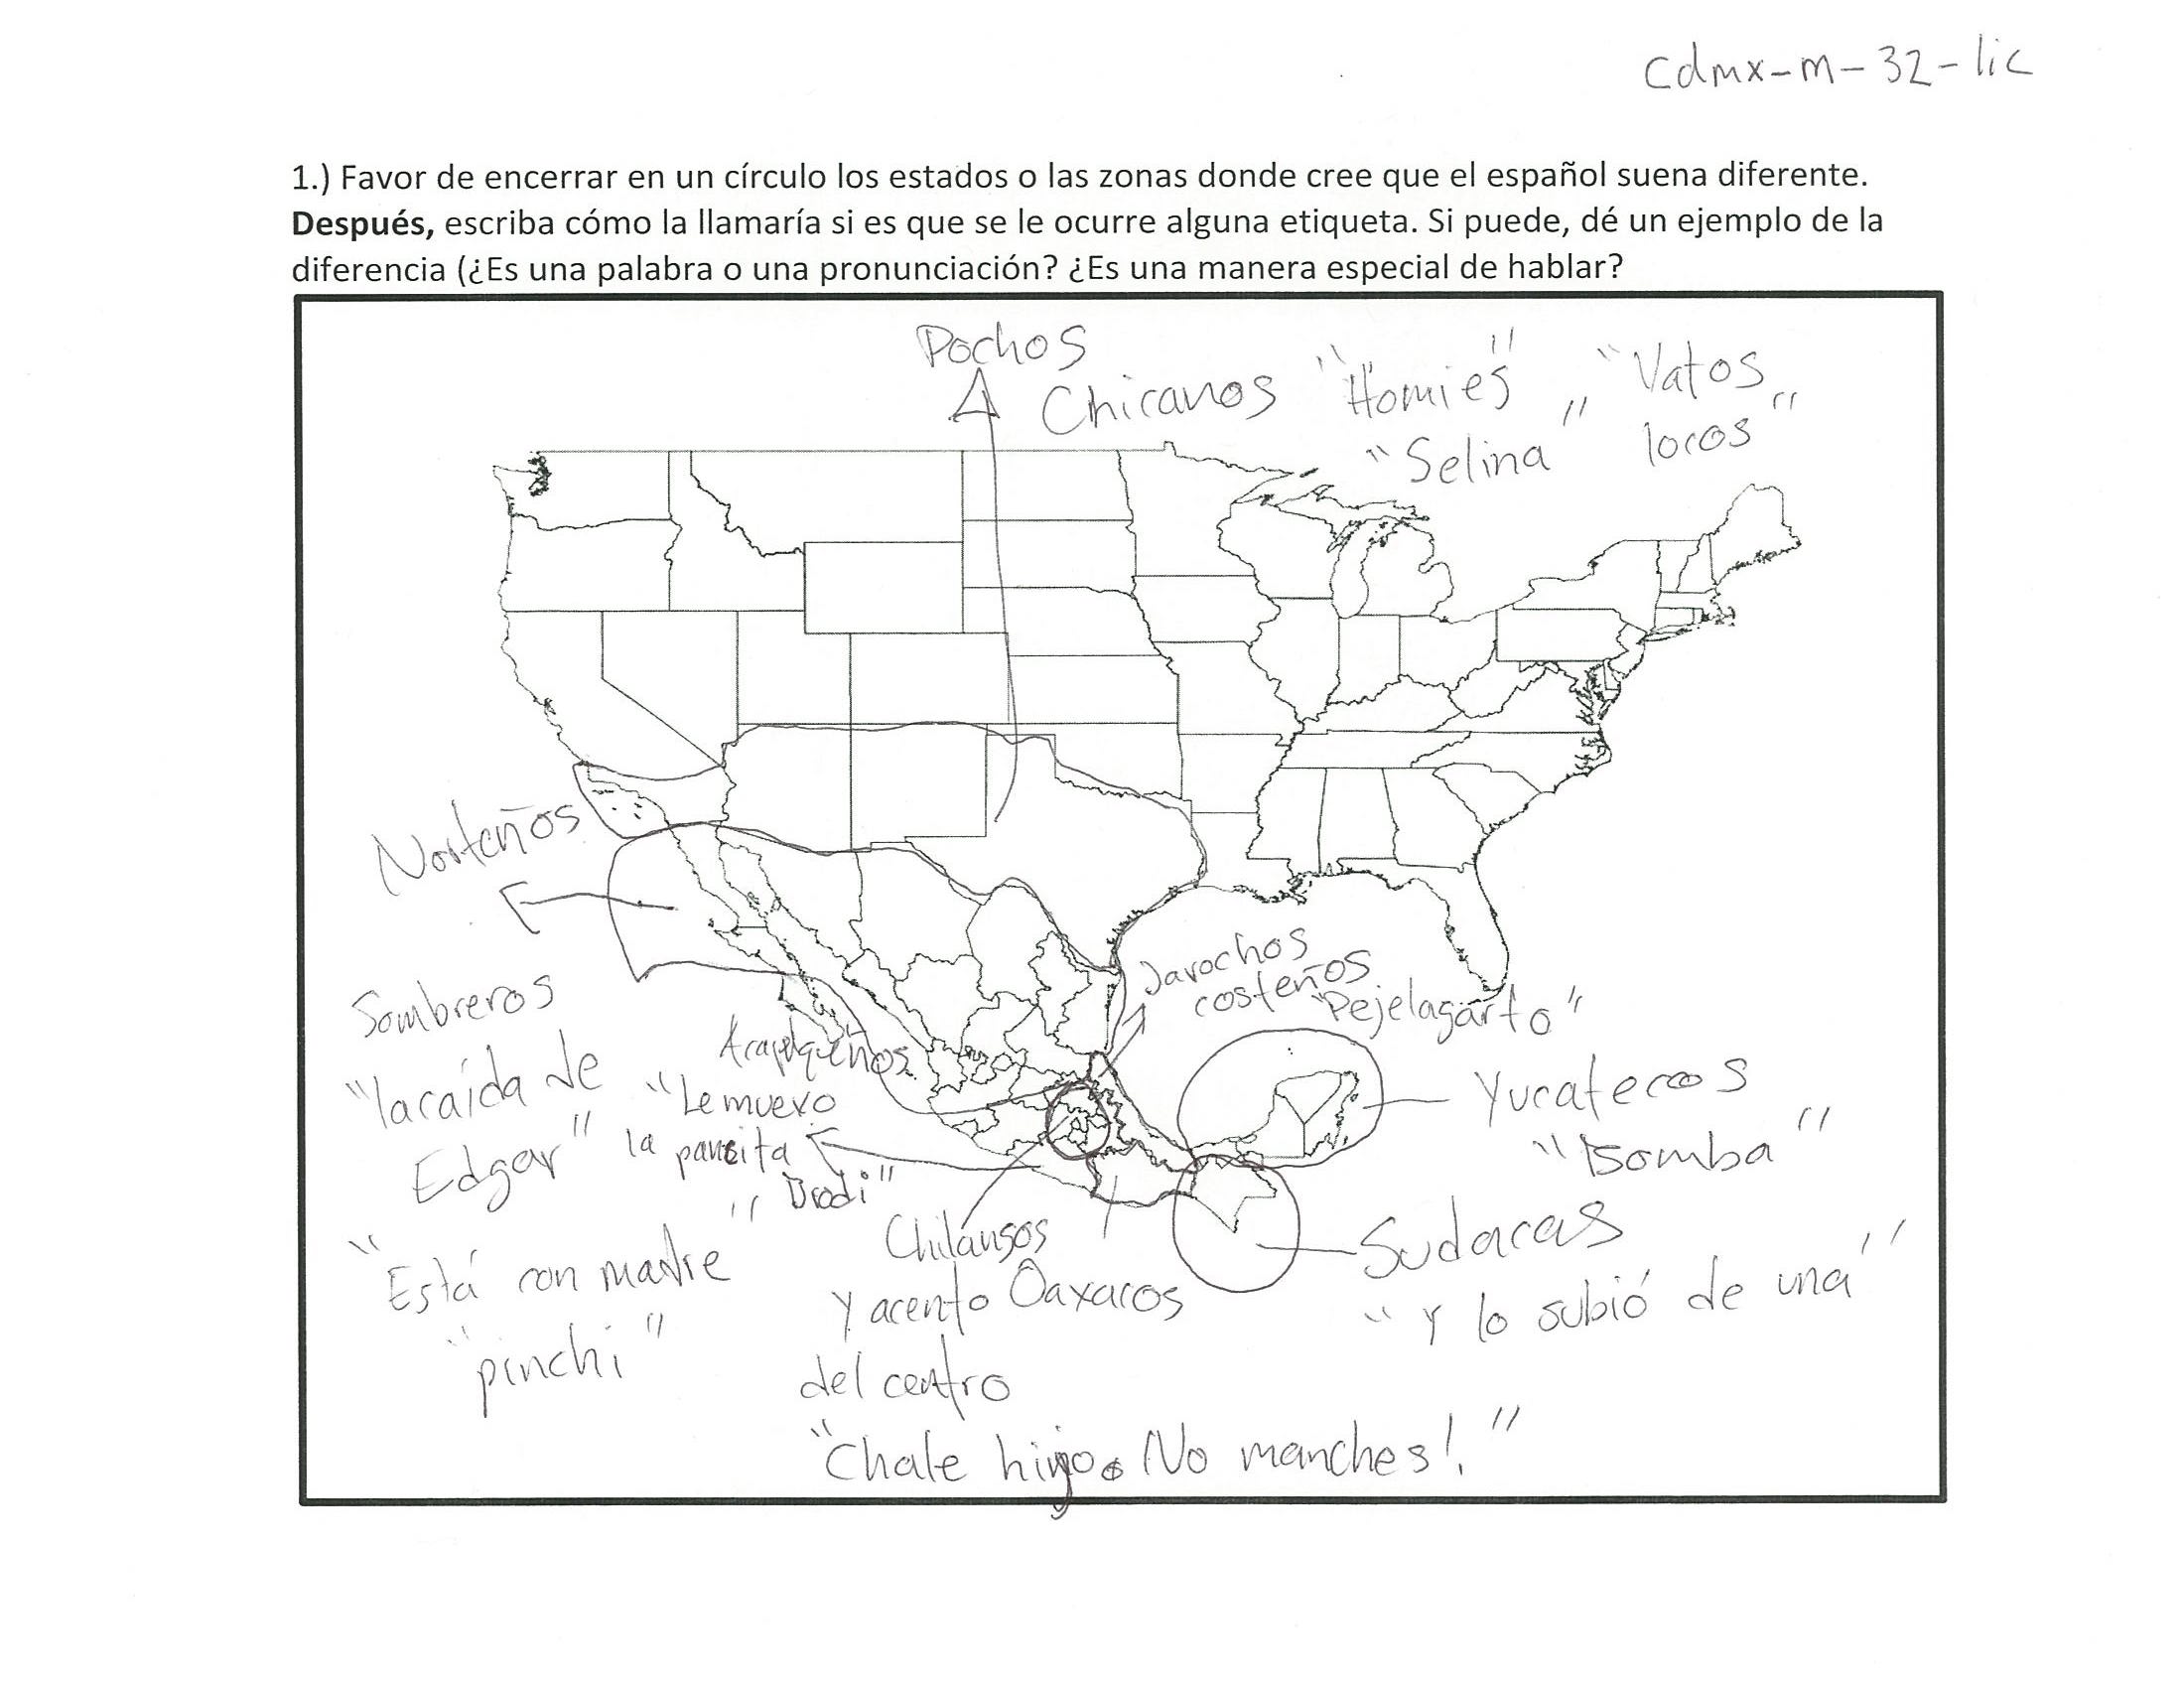 cdmx-m-32-lic
1.) Favor de encerrar en un círculo los estados o las zonas donde cree que el español suena diferente.
Después, escriba cómo la llamaría si es que se le ocurre alguna etiqueta. Si puede, dé un ejemplo de la
diferencia (¿Es una palabra o una pronunciación? ¿Es una manera especial de hablar?
Pochos
Chicanos "Homies", "Vatos
locos"
"Selina"
Norteños
Sombreros
"la caída de
Edgar"
"Está con madre"
"pinchi"
Acapulqueños
"Le muevo
la pancita
Brodi"
Jarochos
costeños
"Pejelagarto"
Yucatecos
"Bomba"
Sudacas
"Y lo subió de una"
Oaxacos
Chilangos
y acento
del centro
"Chale hijo. No manches!"